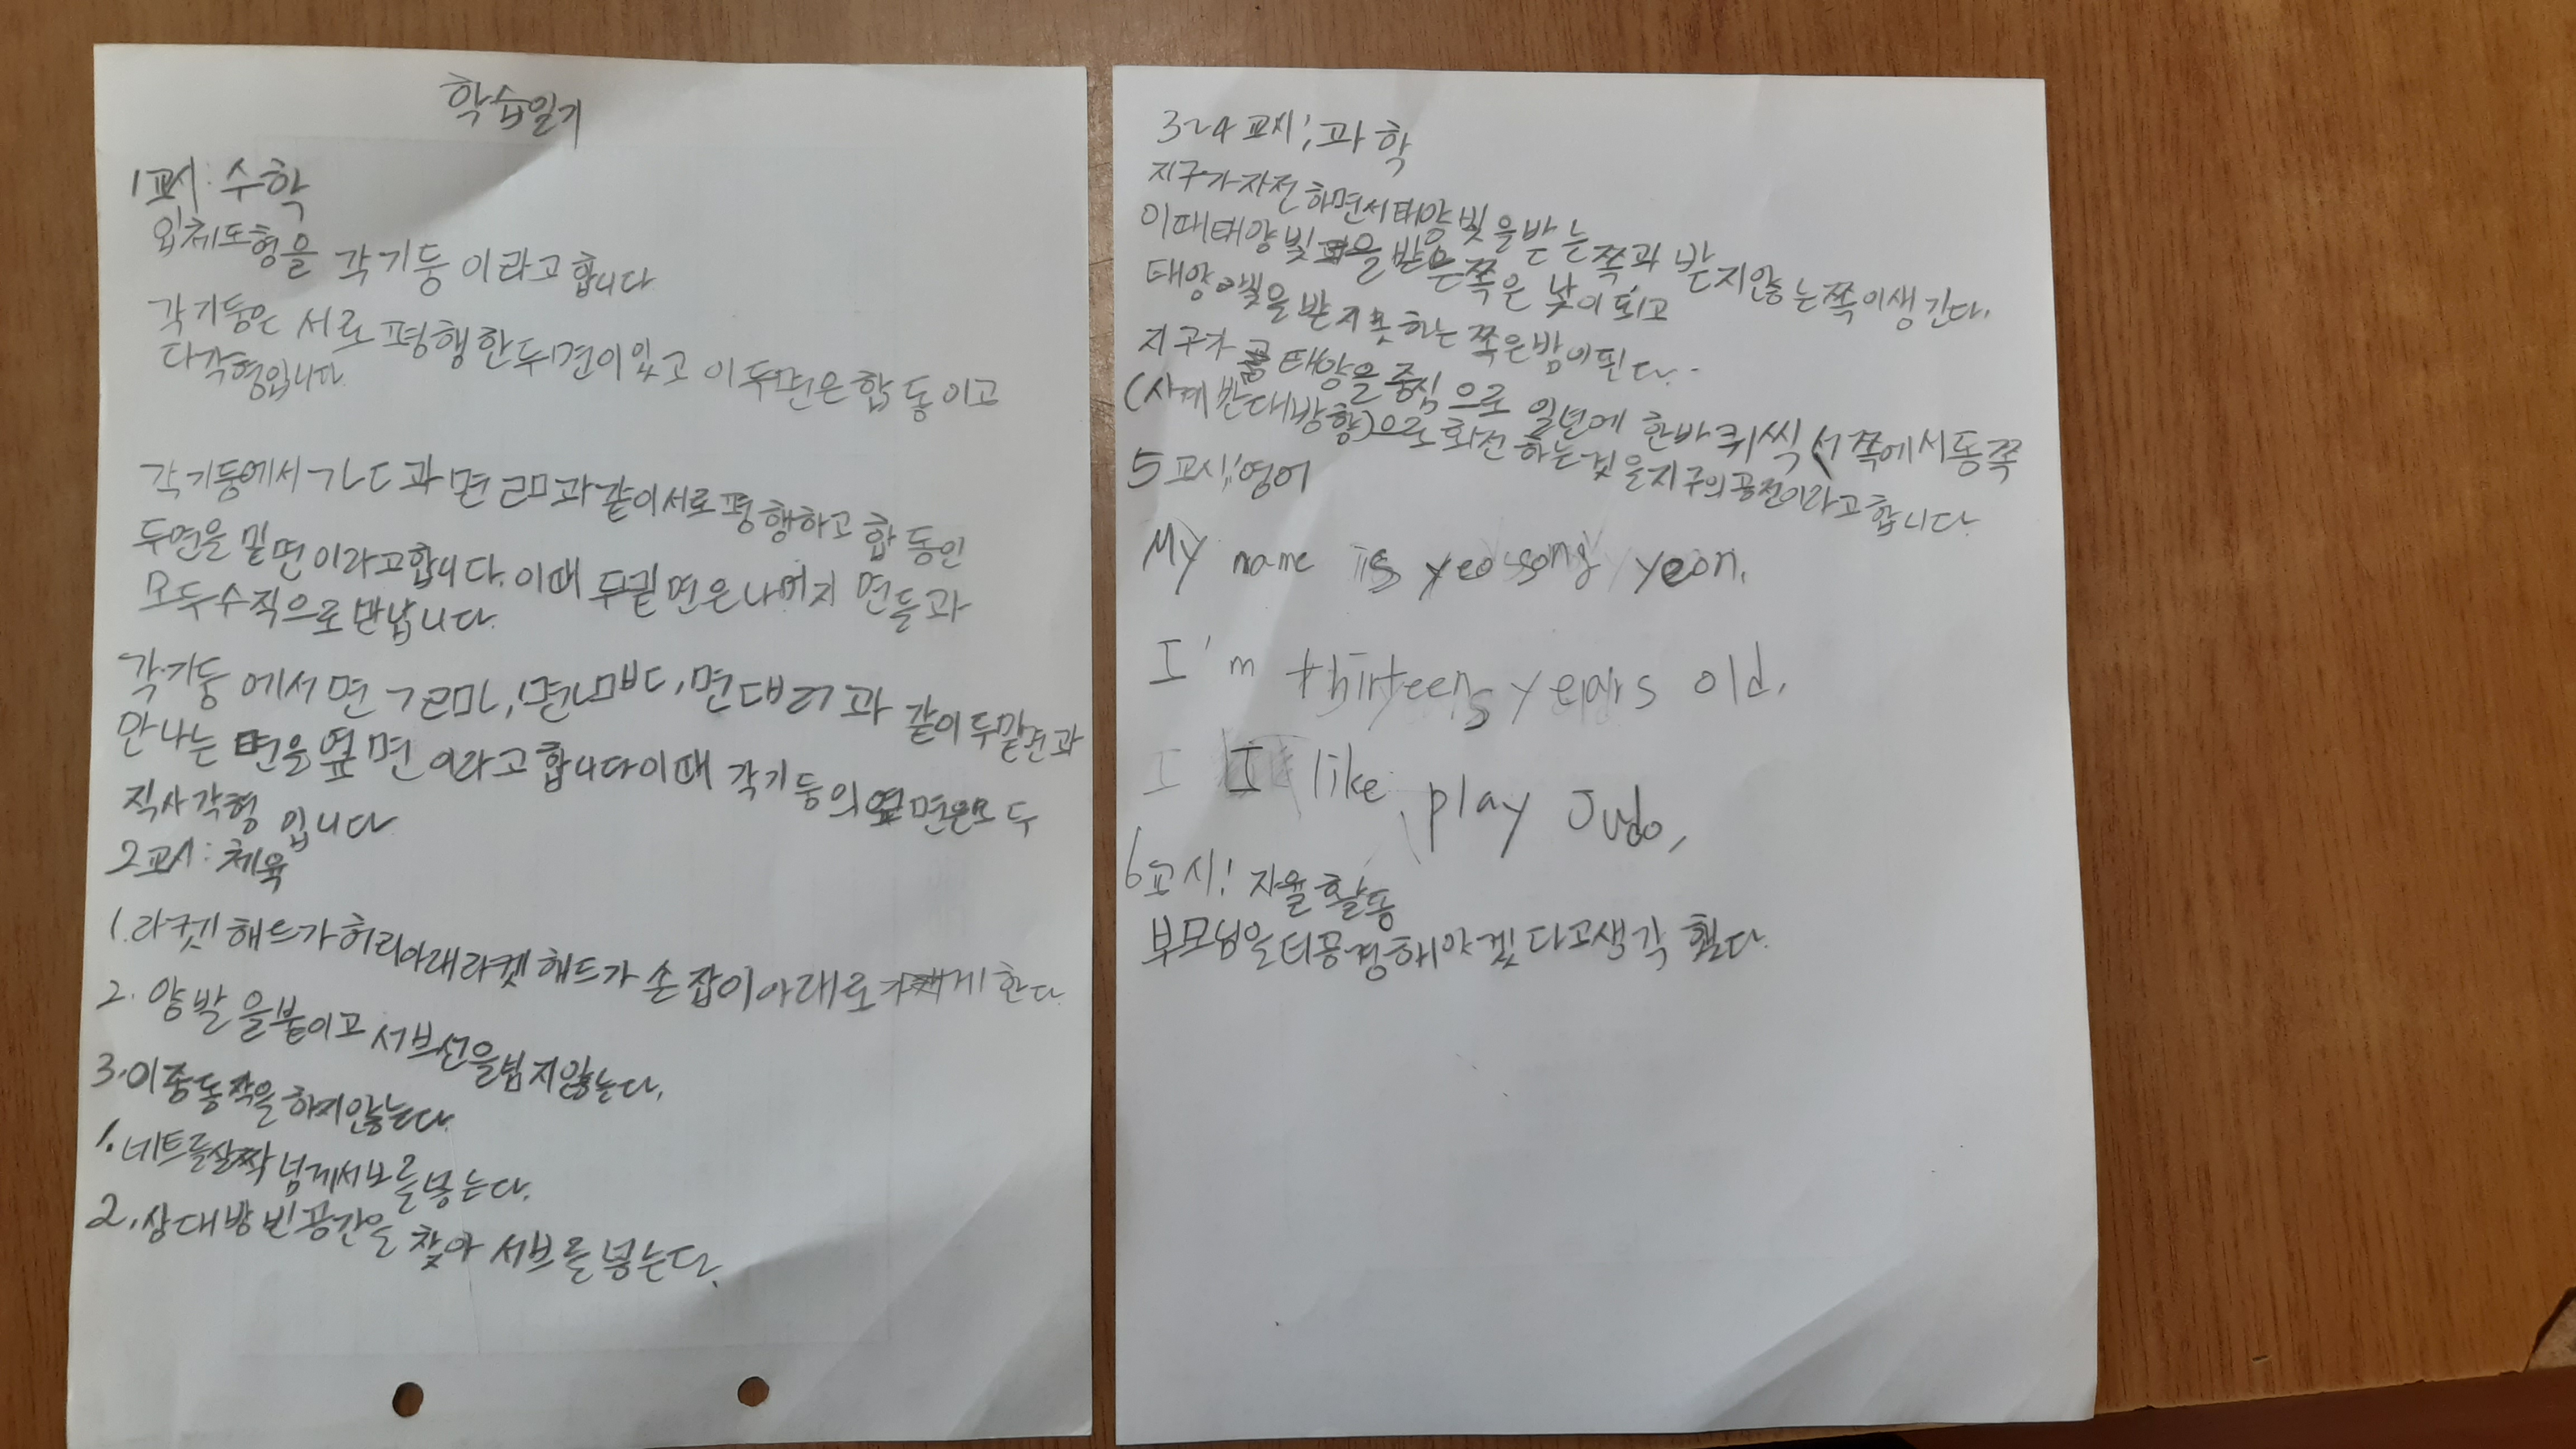 학습일기
1교시: 수학
입체도형을 각기둥 이라고합니다
각기둥은 서로 평행한두면이있고 이두면은합동이고
다각형입니다.
각기둥에서ㄱㄴㄷ과면ㄹㅁ과같이서로평행하고합동인
두면을 밑면이라고합니다. 이때 두밑면은나머지 면들과
모두수직으로만납니다.
각기둥 에서면 ㄱㄹㅁㄴ, 면ㄴㅁㅂㄷ, 면 과 같이두밑면과
만나는 면을옆면 이라고합니다이때 각기둥의옆면은모두
직사각형 입니다
2교시: 체육
1. 라켓헤드가허리아래라켓헤드가 손잡이아래로 한다.
2. 양발을붙이고 서브선을넘지않는다.
3. 이중동작을하지않는다.
1. 네트를살짝넘게서브를넣는다.
2. 상대방빈공간을 찾아 서브를넣는다.
3~4교시: 과학
지구가자전하면서태양빛을받는쪽과 받지않는쪽이생긴다.
이때태양빛을받은쪽은 낮이되고
태양빛을받지못하는쪽은밤이된다.
지구가 태양을중심으로 일년에 한바퀴씩 서쪽에서동쪽
(시계반대방향)으로회전하는것을지구의공전이라고합니다.
5교시: 영어
My name is yeo song yeon.
I'm thirteen years old.
I I like play Judo,
6교시: 자율활동
부모님을더공경해야겠다고생각했다.